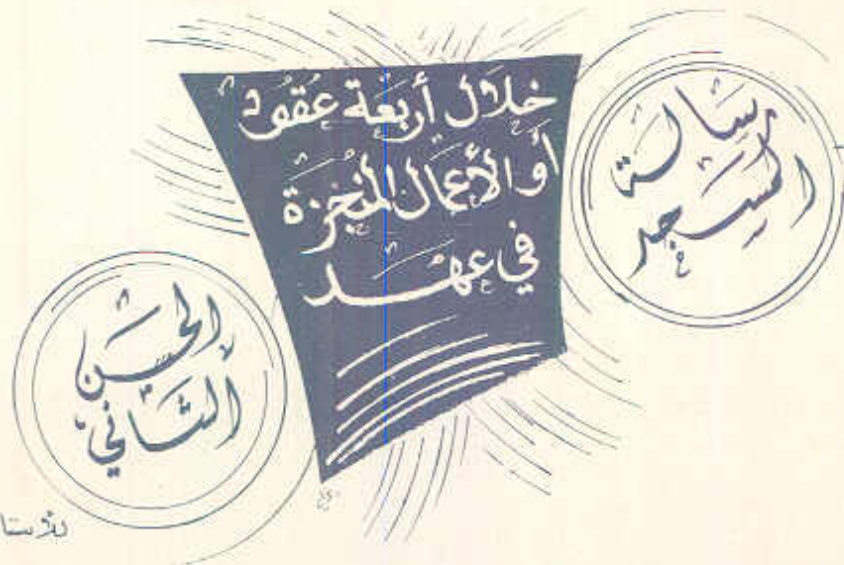 رسالة
المسجد
خلال أربعة عقود
أو الأعمال المنجزة
في عهد
الحسن
الثاني